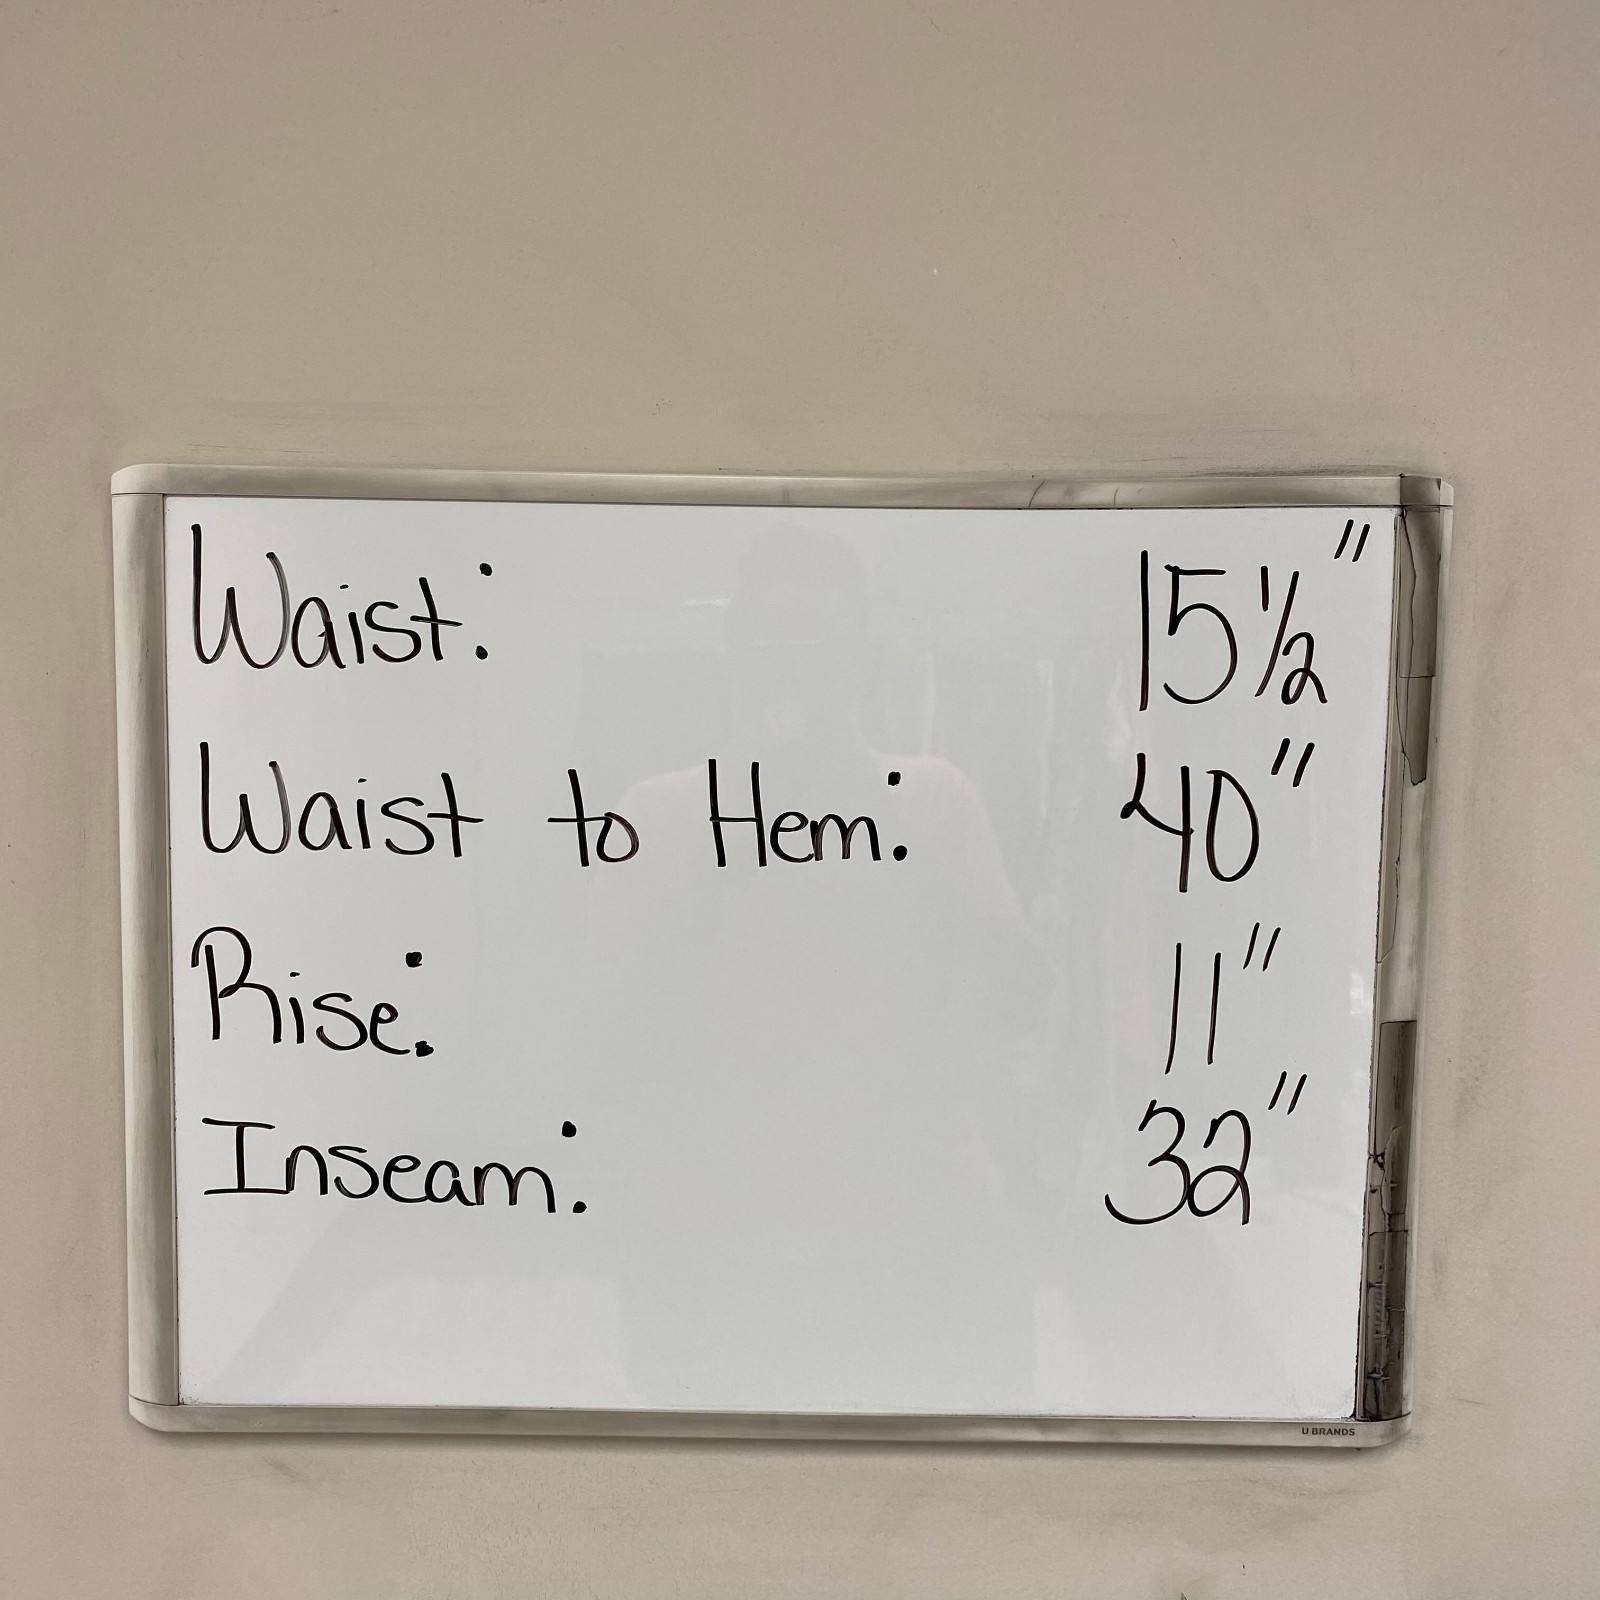 Waist: 15 1/2"
Waist to Hem: 40"
Rise: 11"
Inseam: 32"
U BRANDS